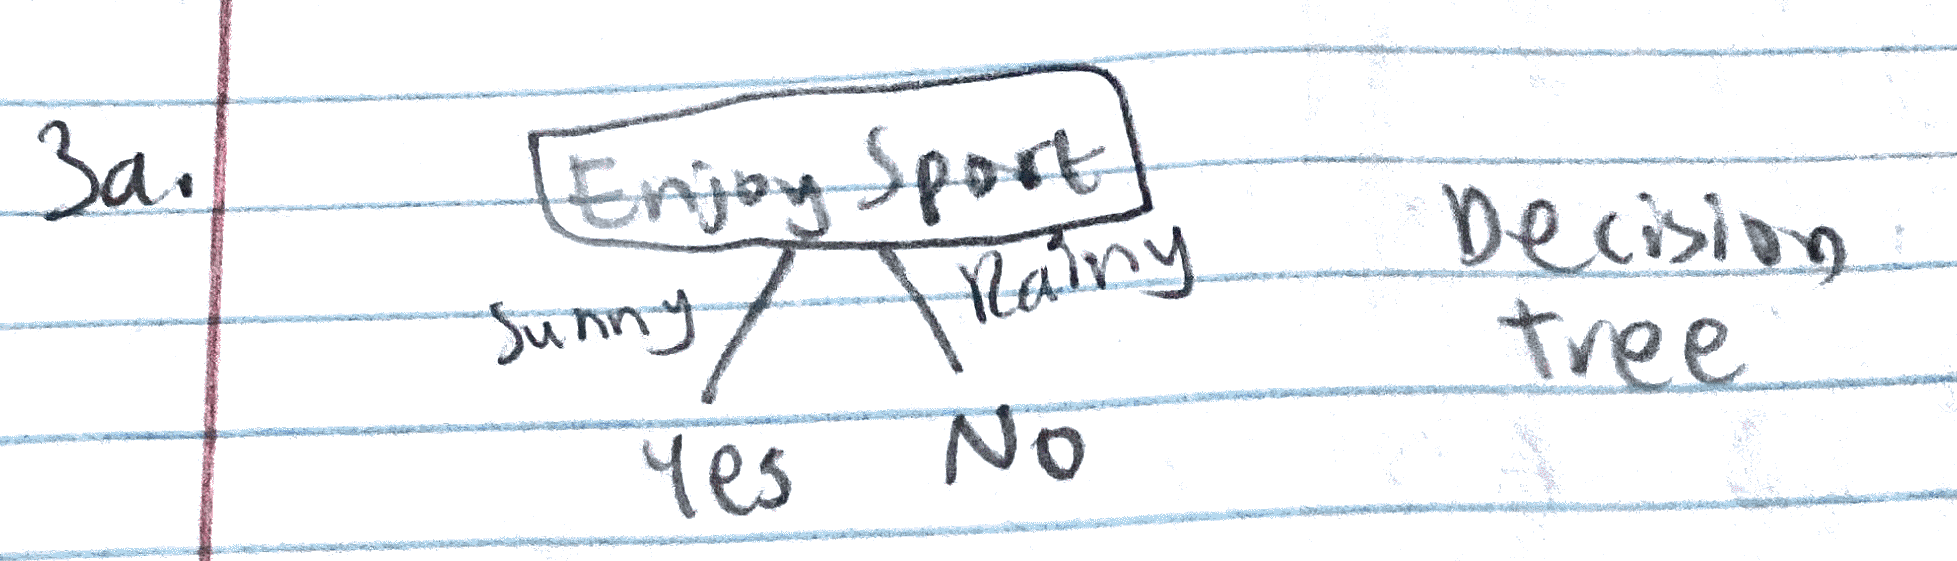 3a.
Enjoy Sport
Sunny Rainy
Yes No
Decision
tree